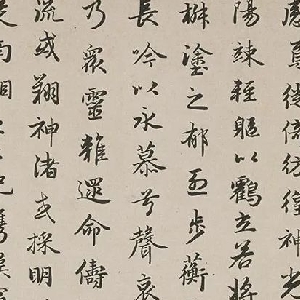 焉徙倚彷徨神光
陽竦輕軀以鶴立若將
椒塗之郁烈步蘅
長吟以永慕兮聲哀
乃眾靈雜遝命儔
流或翔神渚或採明
南湘之二妃攜漢